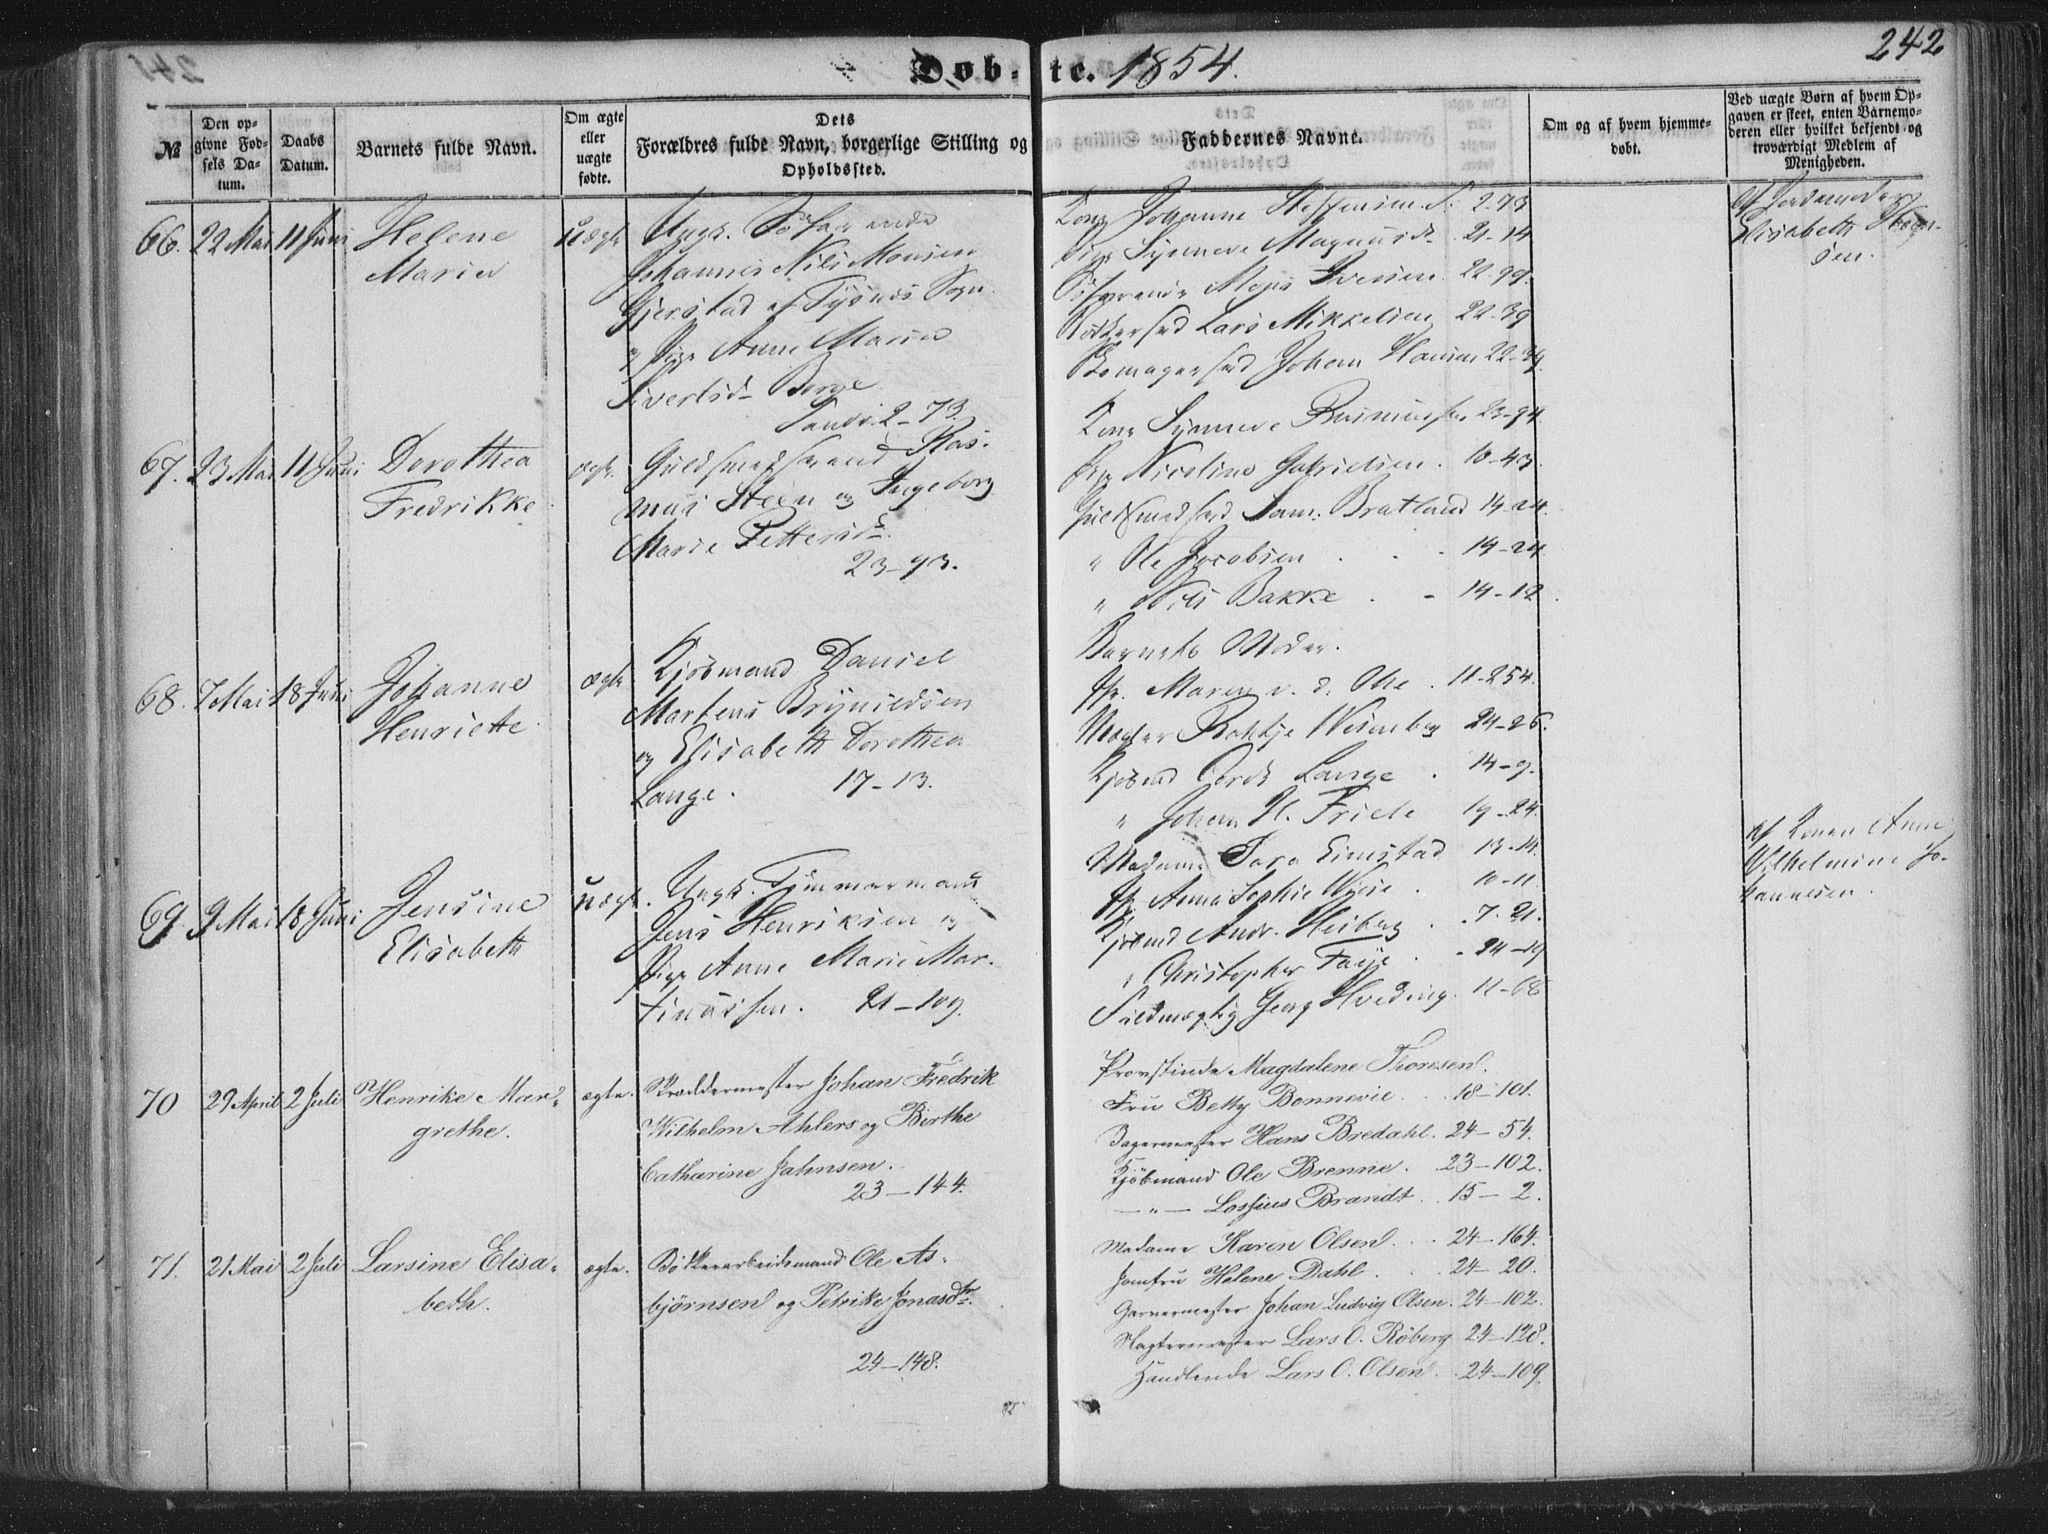 242
Døbte. 1854.
№
Den opgivne Fødsels Datum.
Daabs Datum.
Barnets fulde Navn.
Om ægte eller uægte fødte.
Dets Forældres fulde Navn, borgerlige Stilling og Opholdssted.
Faddernes Navne.
Om og af hvem hjemmedøbt.
Ved uægte Børn af hvem Opgaven er skeet, enten Barnemoderen eller hvilket bekjendt og troværdigt Medlem af Menigheden.
66. 22 Mai 11 Juni Helene
Marie
uægte
Ungk. Søfarende
Johannes Nils Monsen
Gjerstad af Tysnes Sogn
og Pige Anne Marie
Sivertsd. Berge
Sandv. 2-73.
Kone Johanne Steffensen S. 2-73
Pige Synneve Magnusd. 21-14
Søfarende Mons Iversen 22-99.
Lars Mikkelsen 22-39
Johan Hansen 22-39.
af Jordemoder
Elisabeth
sen.
67. 23 Mai 11 Juni Dorothea
Fredrikke
ægte.
Guldsmedsvend Ras-
mus Steen og Ingeborg
Marie Pettersd.
23-93.
Kone Synneve Rasmussen 23-94.
Pige Nicoline Gabrielsen. 10-43.
Guldsmedsvd Sam: Bratland 14-24.
" Ole Jacobsen . . 14-24
" Nils Bakke . - 14-12.
68. 7 Mai 18 Juni Johanne
Henriette.
ægte
Kjøbmand Daniel
Martens Brynildsen
og Elisabeth Dorothea
Lange. 17-13.
Barnets Moder.
Jfr. Maren v. d. Ohe . 11-254.
Madame Wesenberg 24-26.
Kjøbmd Gerdt Lange . 14-9.
" Johan H. Friele 19-24.
69. 9 Mai 18 Juni Jensine
Elisabeth
uægte.
Ungk. Tømmermand
Jens Henriksen og
Pige Anne Marie Mar-
tinussen. 21-109.
Madame Sara Eimstad 13-14.
Jfr. Anna Sophie . 10-11.
Kjøbmd Andr. Heiberg . 7-21.
" Christopher Faye . - 24-19
Fuldmægtig Georg Hveding. 11-68
Af Konen Anne
Wilhelmine Jo-
hannesen.
70 29 April 2 Juli Henrike Mar-
grethe.
ægte.
Skræddermester Johan Fredrik
Wilhelm Ahlers og Birthe
Catharine Jahnsen.
23-144.
Provstinde Magdalene Thoresen.
Fru Betty Bonnevie . . . 18-101.
Bagermester Hans Bredahl. 24-54.
Kjøbmand Ole Brenne. . 23-102.
— " — Lossius Brandt . . 15-2.
71. 21 Mai 2 Juli Larsine Elisa-
beth.
ægte.
Bødkerarbeidsmand Ole As-
bjørnsen og Petrike Jonasdtr.
24-148.
Madame Karen Olsen . . 24-164.
Jomfru Helene Dahl . . . 24-20.
Garvermester Johan Ludvig Olsen. 24-102.
Slagtermester Lars O. Røberg 24-128.
Handlende Lars O. Olsen . . 24-109.